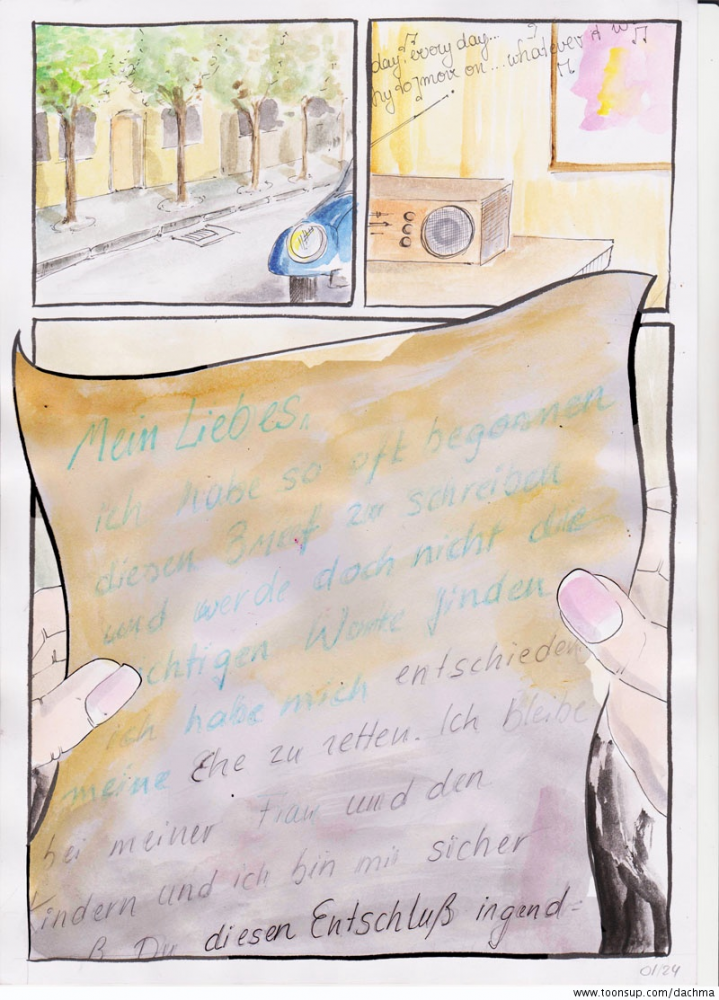 day, every day... whatever A W
hy to move on...
Mein Liebes,
ich habe so oft begonnen
diesen Brief zu schreiben
und werde doch nicht die
ichtigen Worte finden
ich habe mich entschieden
meine Ehe zu retten. Ich bleibe
bei meiner Frau und den
Kindern und ich bin mir sicher
ß Du diesen Entschluß ingend=
01/24
www.toonsup.com/dachma